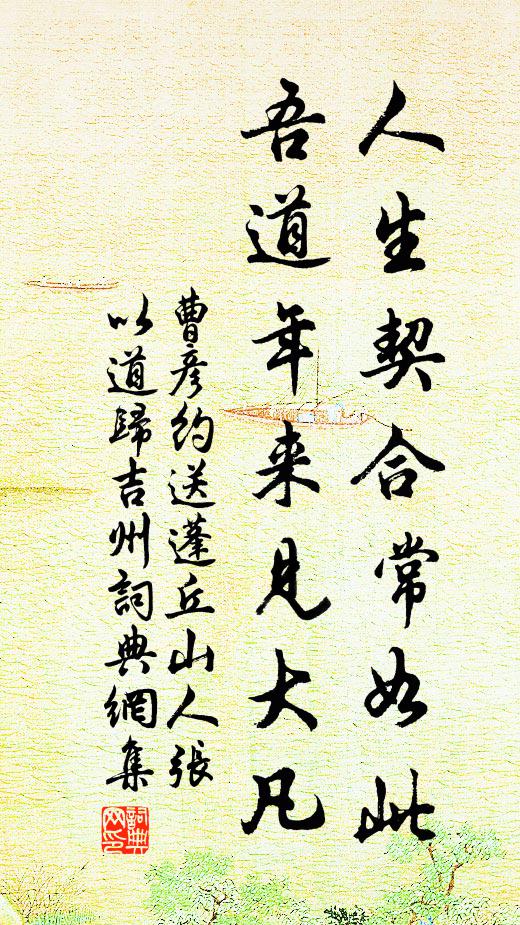 人生契合常如此
吾道年来見大凡
曹彦約送蓬丘山人張
以道歸吉州詞典網集
詞典网印